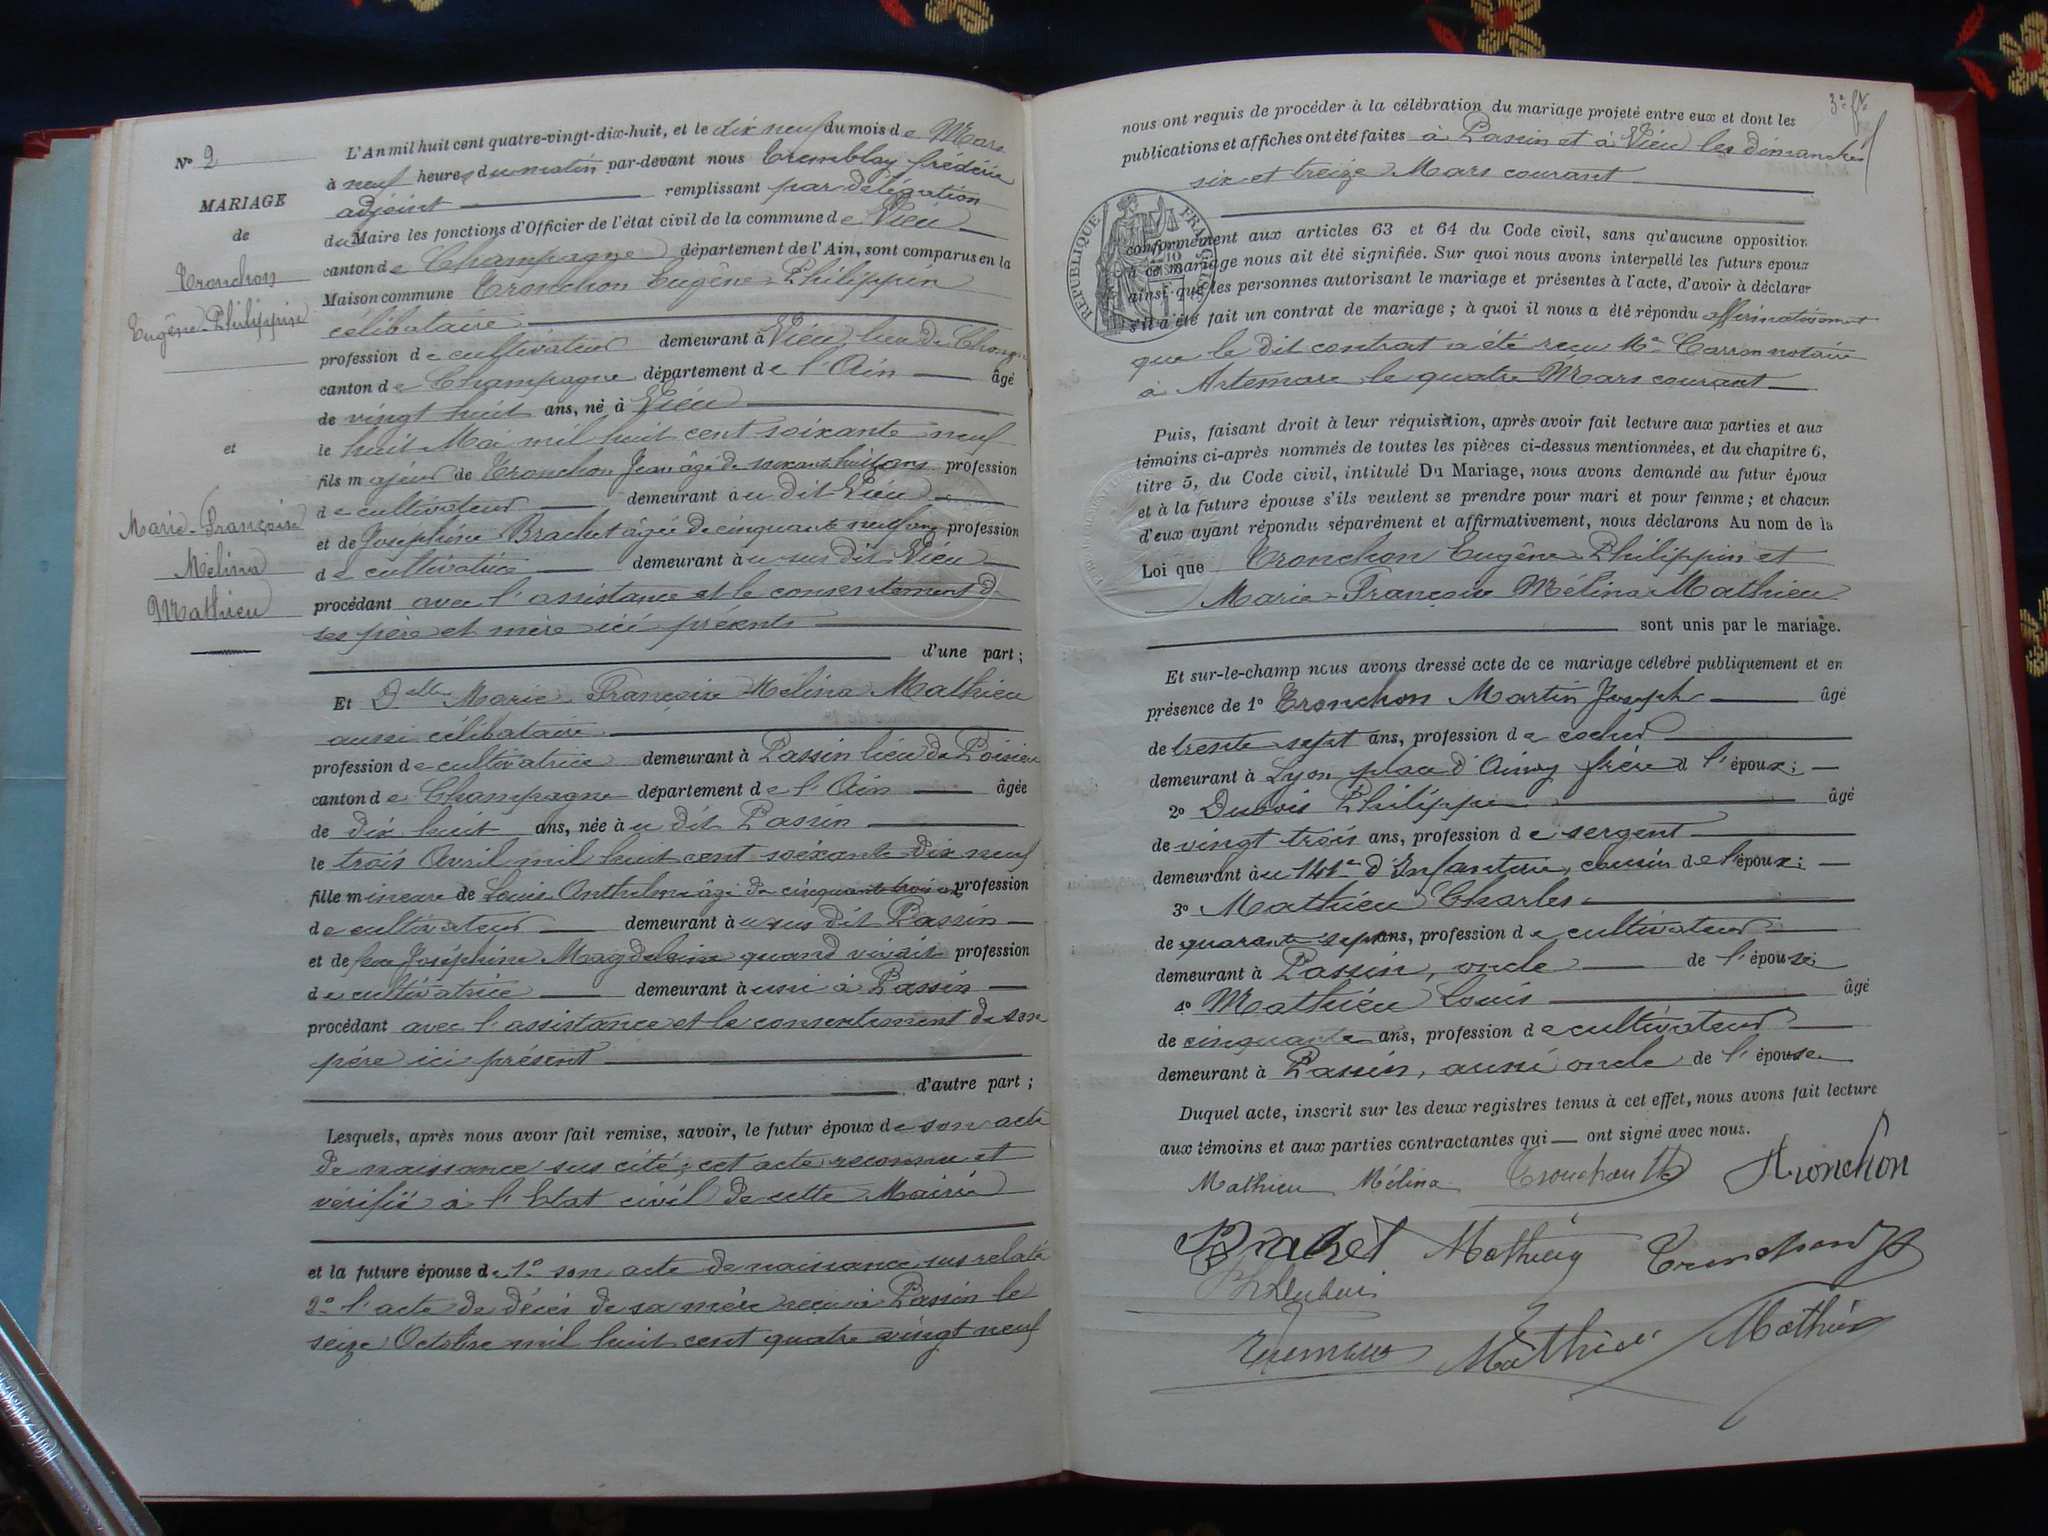 N° 2
MARIAGE
de
Tronchon
Eugène-Philippin
et
Marie-Françoise
Mélina
Mathieu
L'An mil huit cent quatre-vingt-dix-huit, et le dix neuf du mois de Mars
à neuf heures du matin par-devant nous Tremblay frédéric
adjoint remplissant par délégation
du Maire les fonctions d'Officier de l'état civil de la commune de Vieu
canton de Champagne département de l'Ain, sont comparus en la
Maison commune Tronchon Eugène-Philippin
célibataire
profession de cultivateur demeurant à Vieu, lieu de
canton de Champagne département de l'Ain âgé
de vingt huit ans, né à Vieu
le huit Mai mil huit cent soixante neuf
fils majeur de Tronchon Jean âgé de soixante huit ans profession
de cultivateur demeurant au dit Vieu
et de Joséphine Brachet âgée de cinquante neuf ans profession
de cultivatrice demeurant au sus dit Vieu
procédant avec l'assistance et le consentement d
ses père et mère ici présents
d'une part ;
Et Delle Marie-Françoise Mélina Mathieu
aussi célibataire
profession de cultivatrice demeurant à Passin lieu de Poisieu
canton de Champagne département de l'Ain âgée
de dix huit ans, née au dit Passin
le trois Avril mil huit cent soixante dix neuf
fille mineure de Louis Anthelme âgé de cinquante trois ans profession
de cultivateur demeurant au sus dit Passin
et de feue Joséphine Magdeleine quand vivait profession
de cultivatrice demeurant aussi à Passin
procédant avec l'assistance et le consentement de son
père ici présent
d'autre part ;
Lesquels, après nous avoir fait remise, savoir, le futur époux de son acte
de naissance sus cité ; cet acte reconnu et
vérifié à l'Etat civil de cette Mairie
et la future épouse de 1° son acte de naissance sus relaté
2° l'acte de décès de sa mère reçu à Passin le
seize Octobre mil huit cent quatre vingt neuf
3e ft
nous ont requis de procéder à la célébration du mariage projeté entre eux et dont les
publications et affiches ont été faites à Passin et à Vieu les dimanches
six et treize Mars courant
REPUBLIQUE FRANÇAISE
conformément aux articles 63 et 64 du Code civil, sans qu'aucune opposition
à ce mariage nous ait été signifiée. Sur quoi nous avons interpellé les futurs époux
ainsi que les personnes autorisant le mariage et présentes à l'acte, d'avoir à déclarer
s'il a été fait un contrat de mariage ; à quoi il nous a été répondu affirmativement
que le dit contrat a été reçu Me Carron notaire
à Artemare le quatre Mars courant
Puis, faisant droit à leur réquisition, après avoir fait lecture aux parties et aux
témoins ci-après nommés de toutes les pièces ci-dessus mentionnées, et du chapitre 6,
titre 5, du Code civil, intitulé Du Mariage, nous avons demandé au futur époux
et à la future épouse s'ils veulent se prendre pour mari et pour femme ; et chacun
d'eux ayant répondu séparément et affirmativement, nous déclarons Au nom de la
Loi que Tronchon Eugène-Philippin et
Marie-Françoise Mélina Mathieu
sont unis par le mariage.
Et sur-le-champ nous avons dressé acte de ce mariage célébré publiquement et en
présence de 1° Tronchon Martin Joseph âgé
de trente sept ans, profession de cocher
demeurant à Lyon place d'Ainay frère d l'époux ;
2° Dubois Philippe âgé
de vingt trois ans, profession de sergent
demeurant au d'Infanterie, cousin de l'époux ;
3° Mathieu Charles
de quarante sept ans, profession de cultivateur
demeurant à Passin, oncle de l'épouse
4° Mathieu Louis âgé
de cinquante ans, profession de cultivateur
demeurant à Passin, aussi oncle de l'épouse
Duquel acte, inscrit sur les deux registres tenus à cet effet, nous avons fait lecture
aux témoins et aux parties contractantes qui ont signé avec nous.
Mathieu Mélina Tronchon Tronchon
Brachet Mathieu Tronchon
Ph Dubois
Mathieu Mathieu